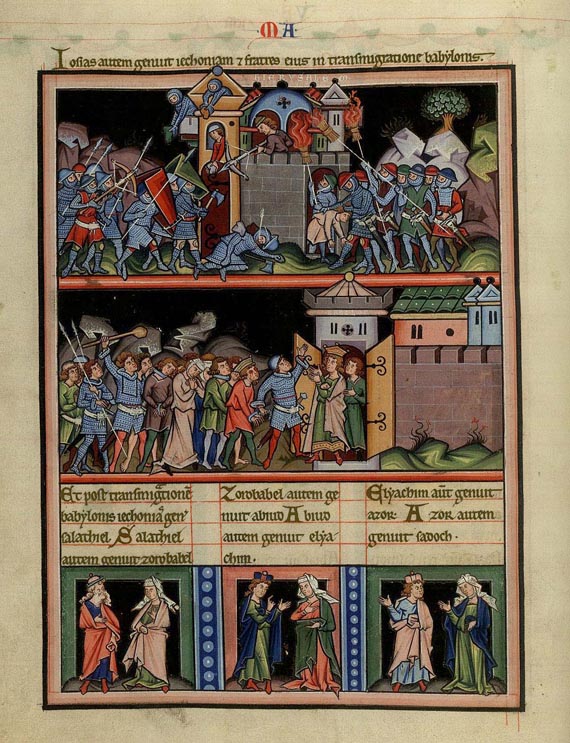 MA
Iosias autem genuit iechoniam ⁊ fratres eius in transmigratione babylonis.
Et post transmigrationē
babylonis iechonias gen̄
salathiel. Salathiel
autem genuit zorobabel
Zorobabel autem ge
nuit abiud Abiud
autem genuit elya
chim.
Elyachim aūt genuit
azor. Azor autem
genuit sadoch.